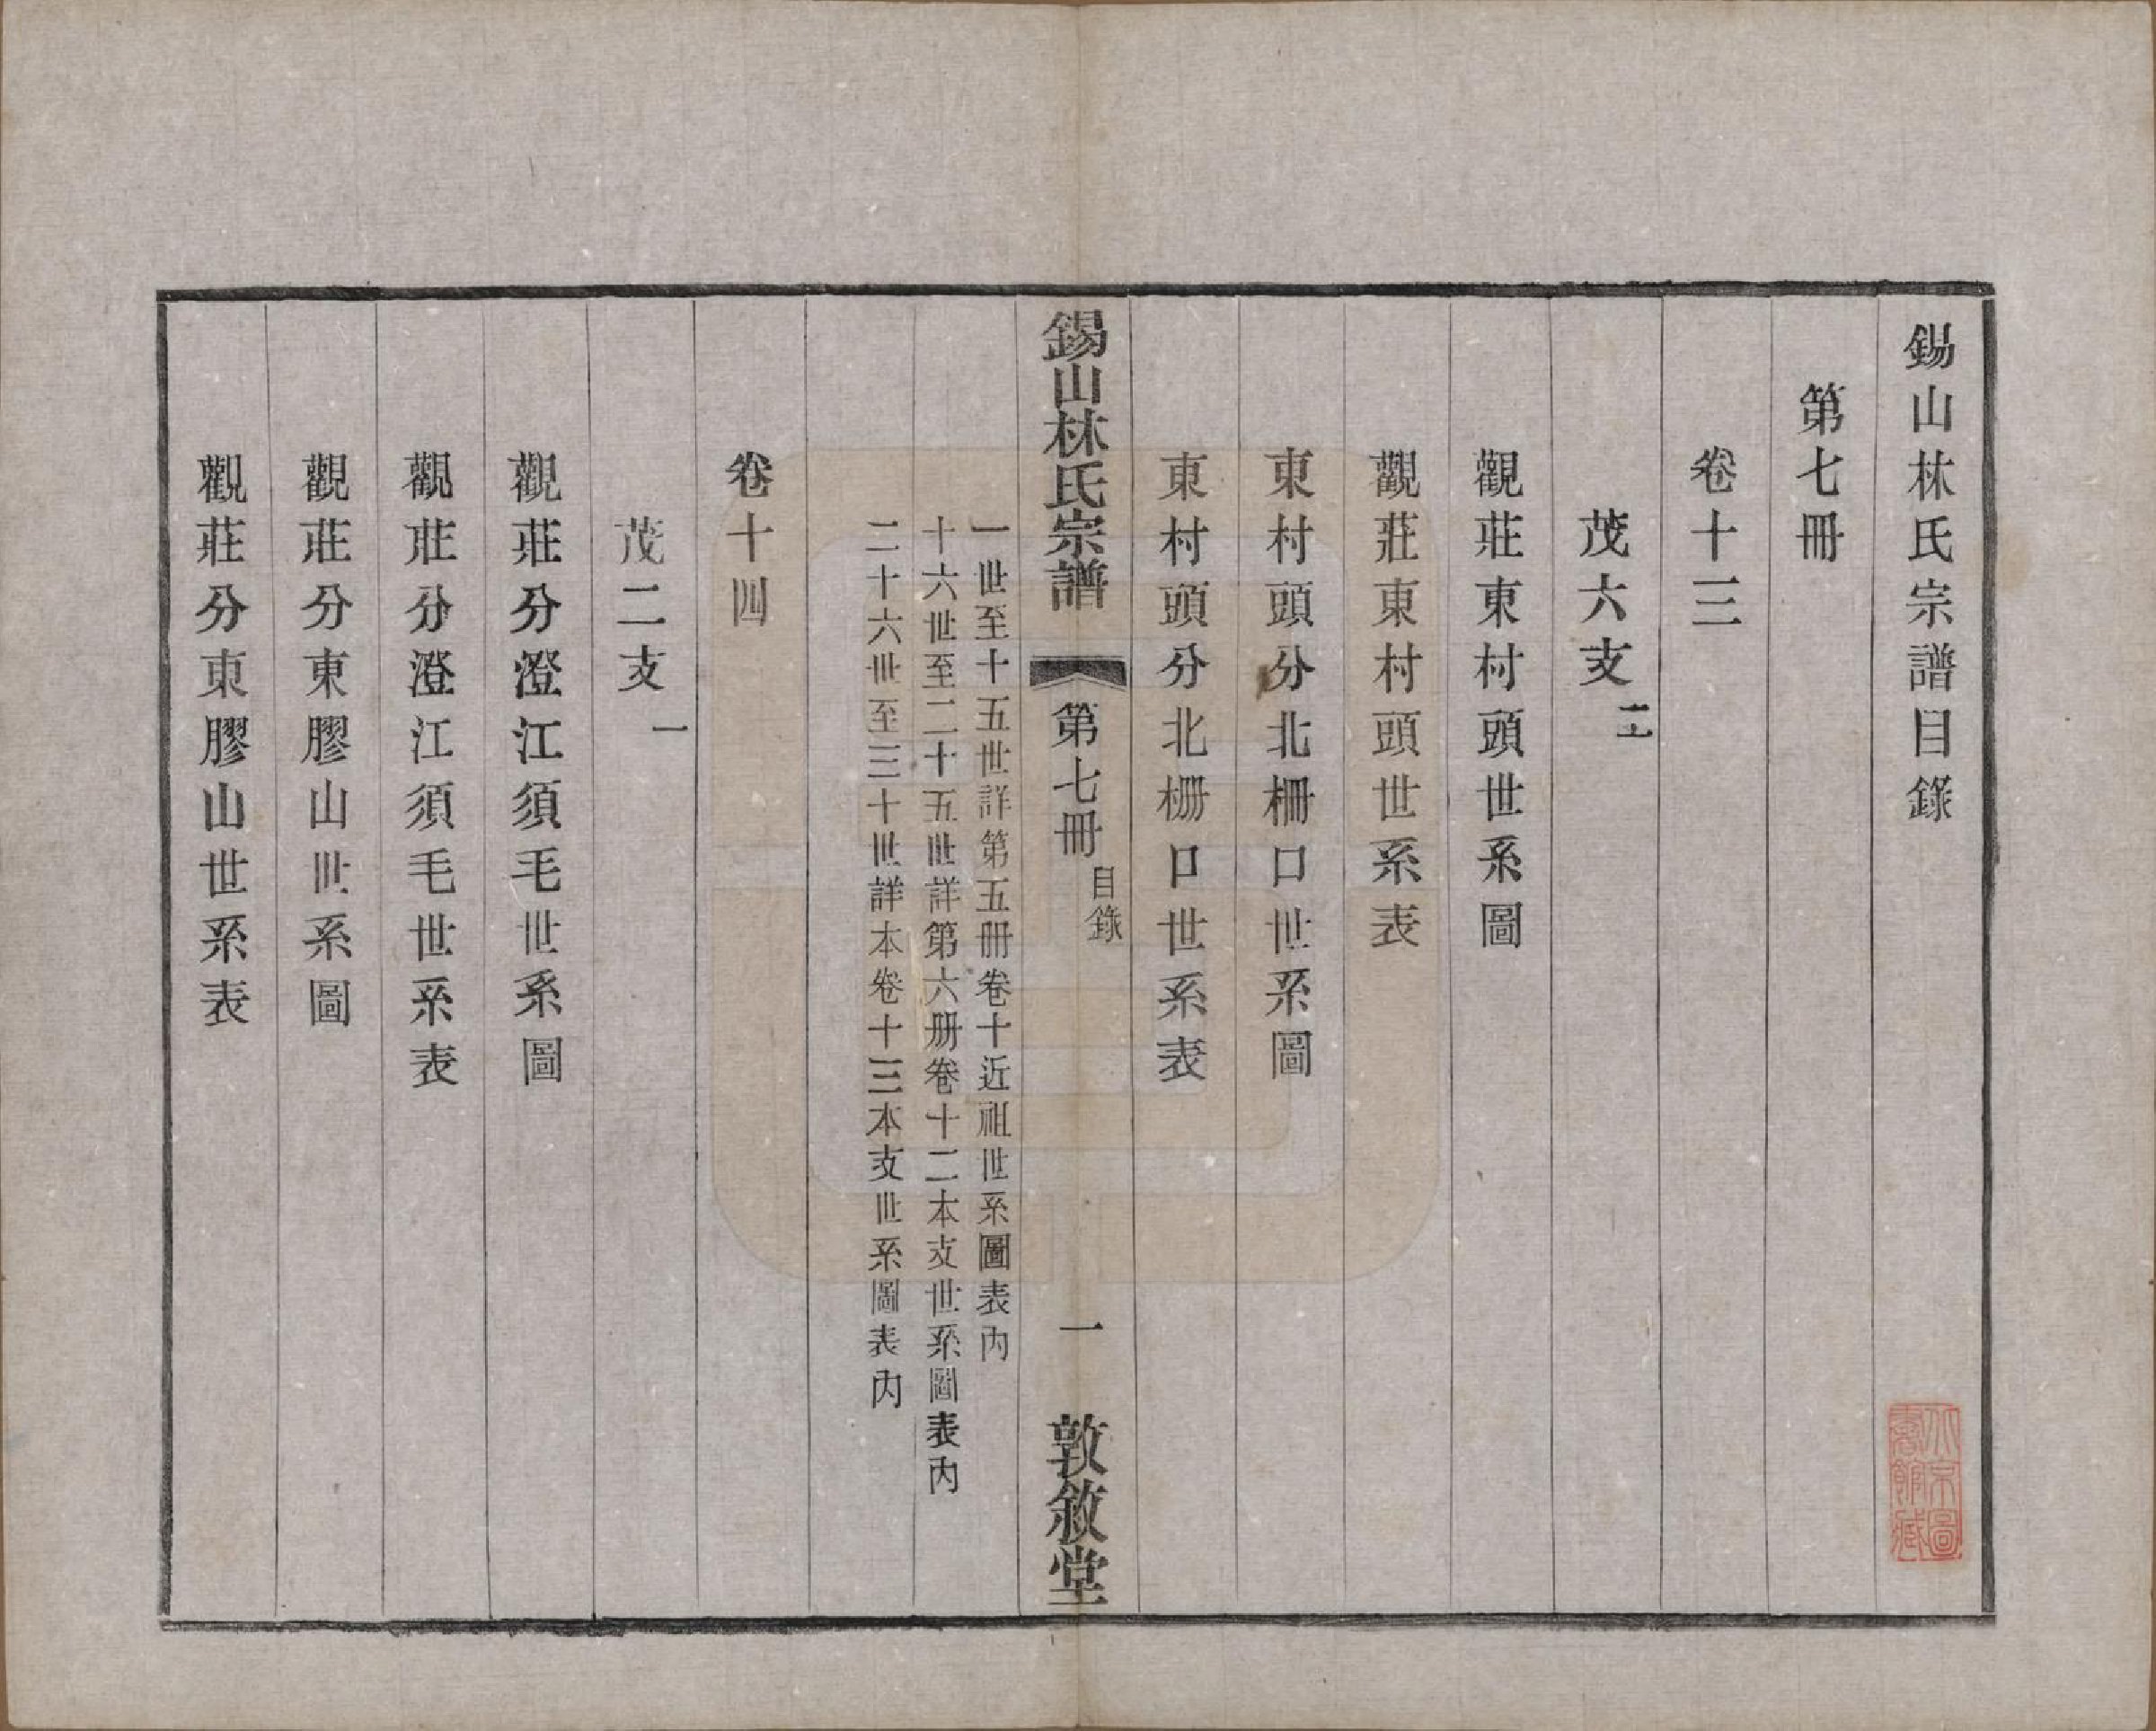 錫山林氏宗譜目錄
第七冊
卷十三
茂六支二十
觀莊東村頭世系圖
觀莊東村頭世系表
東村頭分北柵口世系圖
東村頭分北柵口世系表
錫山林氏宗譜
第七冊
目錄
一
敦敘堂
一世至十五世詳第五册卷十近祖世系圖表內
十六世至二十五世詳第六册卷十二本支世系圖表內
二十六世至三十世詳本卷十三本支世系圖表內
卷十四
茂二支一
觀莊分澄江須毛世系圖
觀莊分澄江須毛世系表
觀莊分東膠山世系圖
觀莊分東膠山世系表
北京圖
書館藏